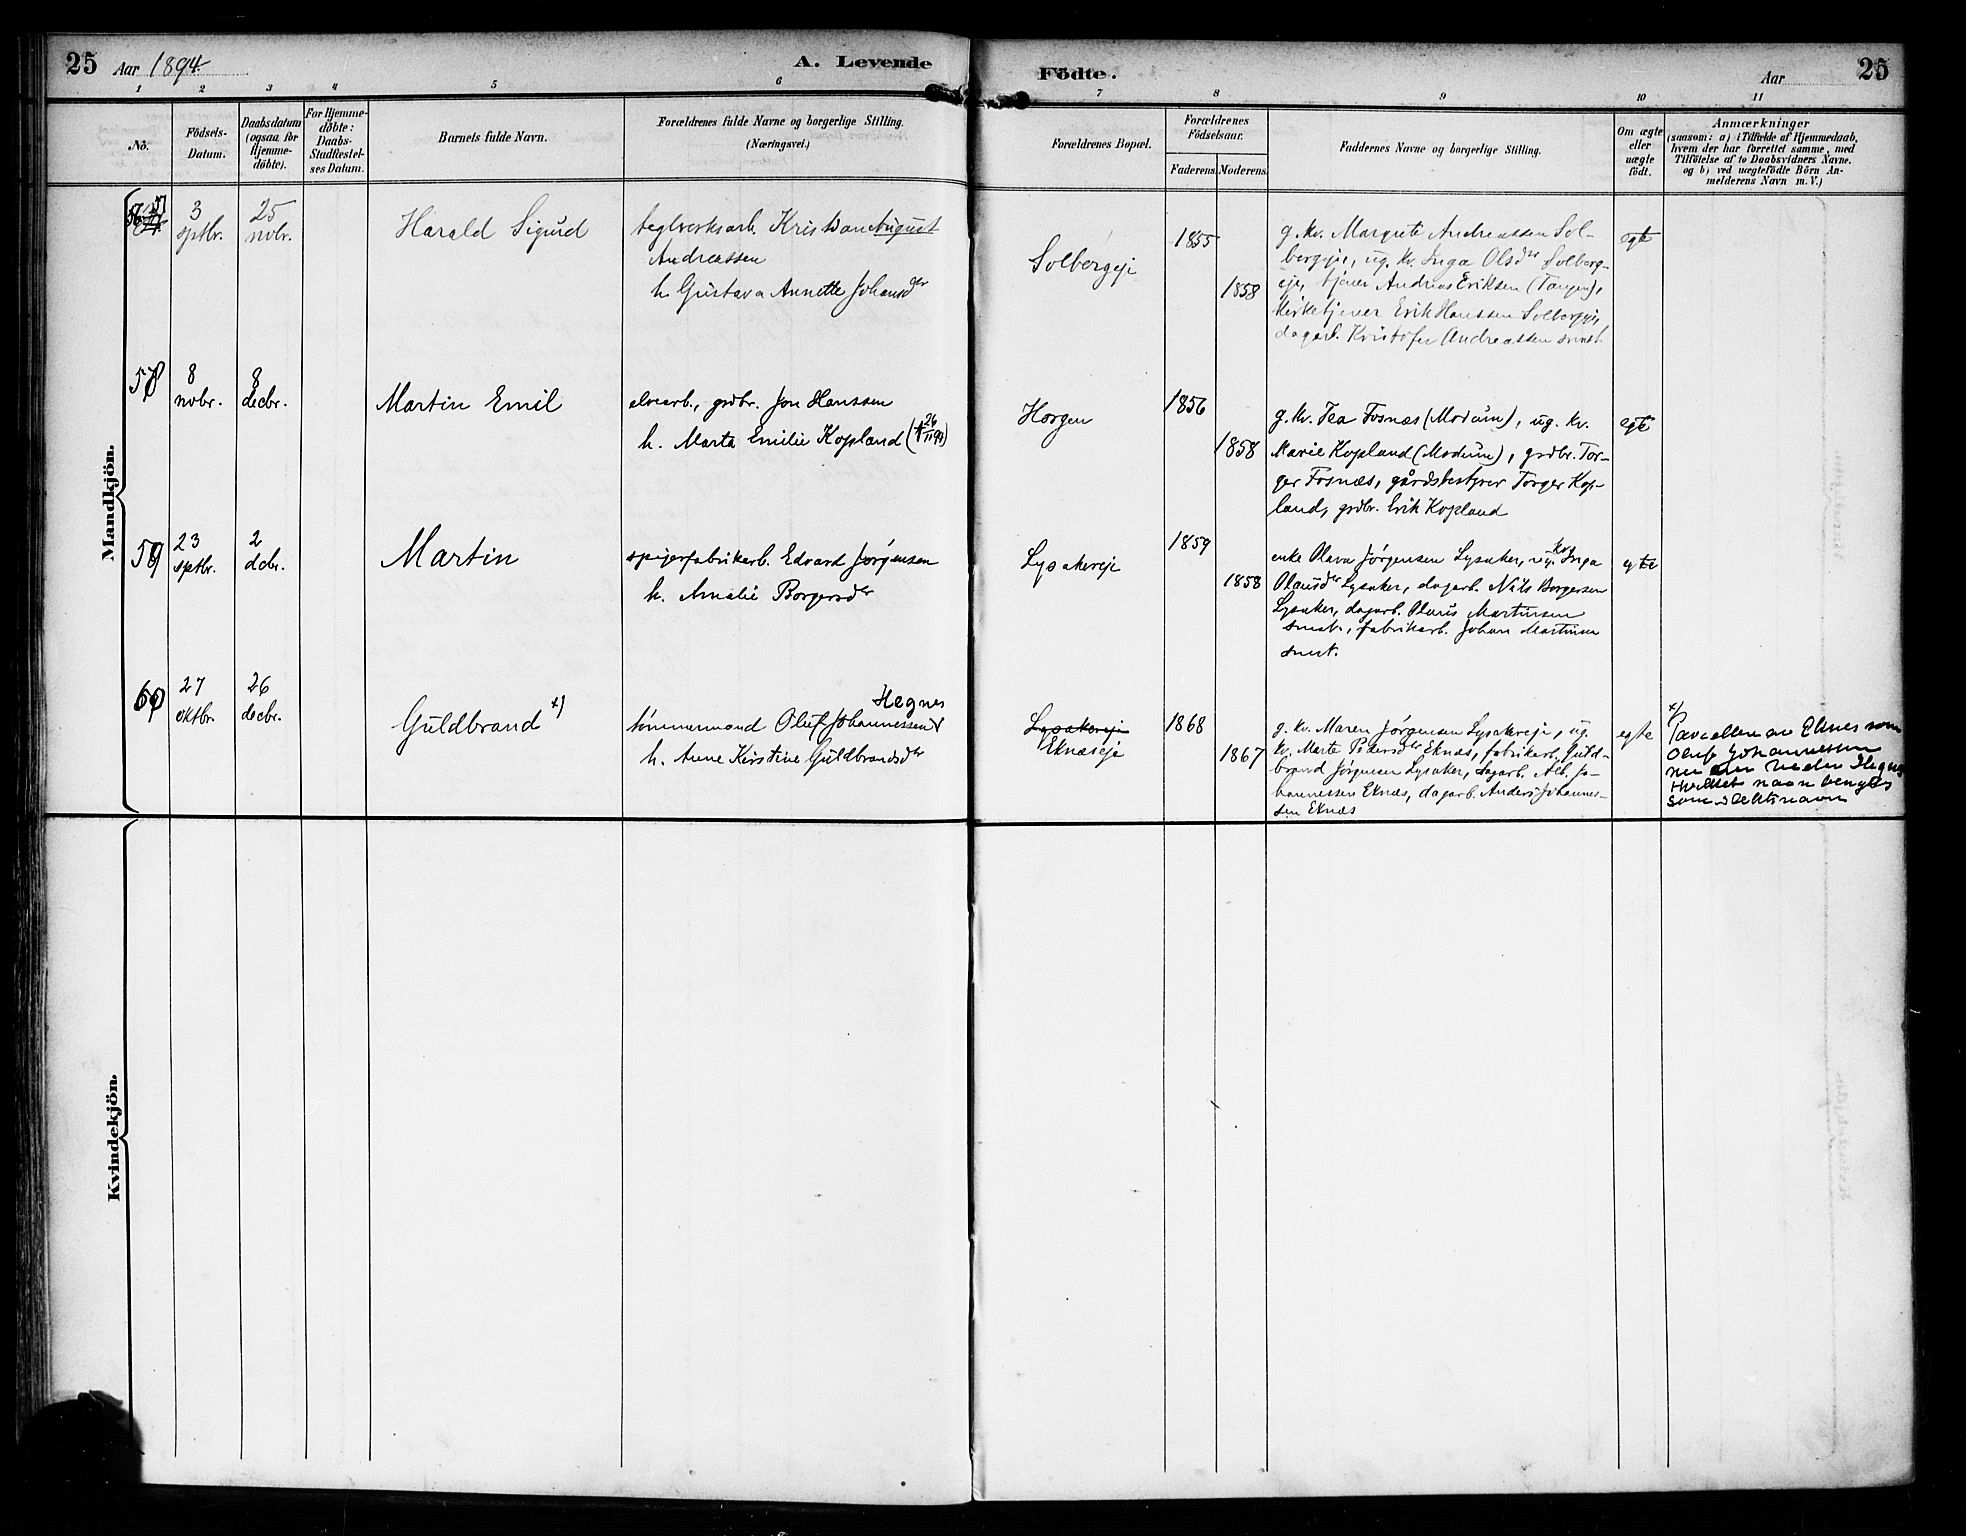 25 Aar 1894. A. Levende Födte. Aar 25
1 2 3 4 5 6 7 8 9 10 11
No.
Födsels-
Datum.
Daabsdatum
(ogsaa for
Hjemme-
döbte).
For Hjemme-
döbte:
Daabs-
Stadfæstel-
ses Datum.
Barnets fulde Navn.
Forældrenes fulde Navne og borgerlige Stilling.
(Næringsvei.)
Forældrenes Bopæl.
Forældrenes
Födselsaar.
Faderens. Moderens.
Faddernes Navne og borgerlige Stilling.
Om ægte
eller
uægte
födt.
Anmærkninger
(saasom: a) i Tilfælde af Hjemmedaab,
hvem der har forrettet samme, med
Tilföielse af to Daabsvidners Navne.
og b) ved uægtefödte Börn An-
melderens Navn m. V.)
Mandkjön.
57
3
sptbr.
25
nvbr.
Harald Sigurd
teglverksarb. Kristian August
Andreassen
h. Gustava Annette Johansdtr
Solbergeje
1855
1858
g. kv. Margrete Andreassen Sol-
bergeje, ug. kv. Inga Olsdtr Solberg-
eje, tjener Andreas Eriksen (Tangen),
kirketjener Erik Hanssen Solbergeje,
dagarb. Kristofer Andreassen smst.
egte
58
8
nvbr.
8
decbr.
Martin Emil
elvearb., grdbr. Jon Hanssen
h. Marta Emilie Kopland († 26/11 94)
Horgen
1856
1858
g. kv. Tea Fosnæs (Modum), ug. kv.
Marie Kopland (Modum), grdbr. Tor-
ger Fosnæs, gårdsbestyrer Torger Kop-
land, grdbr. Erik Kopland
egte
59
23
sptbr.
2
dcbr.
Martin
spigerfabrikarb. Edvard Jørgensen
h. Amalie Borgersdtr
Lysakereje
1859
1858
enke Olava Jørgensen Lysaker, ug. kv. Inga
Olausdtr Lysaker, dagarb. Nils Borgersen
Lysaker, dagarb. Olaus Martinsen
smst., fabrikarb. Johan Martinsen
smst.
egte
60
27
oktbr.
26
decbr.
Guldbrand x)
Hegnes
tømmermand Oluf Johannessen
h. Anne Kirstine Guldbrandsdtr
Lysakereje
Eknæseje
1868
1867
g. kv. Maren Jørgensen Lysakereje, ug.
kv. Marte Pedersdtr Eknæs, fabrikarb. Guld-
brand Jørgensen Lysaker, dagarb. Alb. Jo-
hannessen Eknæs, dagarb. Anders Johannes-
sen Eknæs
egte
x)
Parcellen av Eknes som
Oluf Johannessen
heder Hegnes
hvilket navn
som slektsnavn
Kvindekjön.